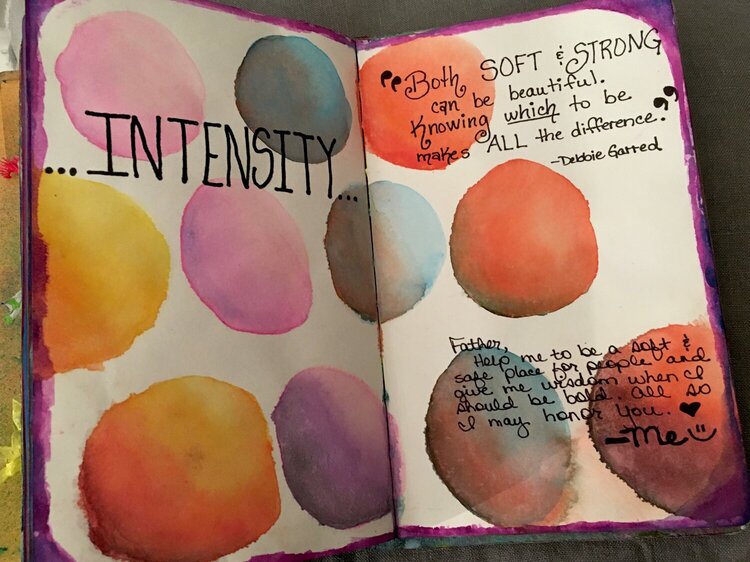 ...INTENSITY...
"Both SOFT & STRONG
can be beautiful.
Knowing which to be
makes ALL the difference."
-Debbie Garred
Father,
Help me to be a soft &
safe place for people and
give me wisdom when I
should be bold. All so
I may honor you. ♥
-Me